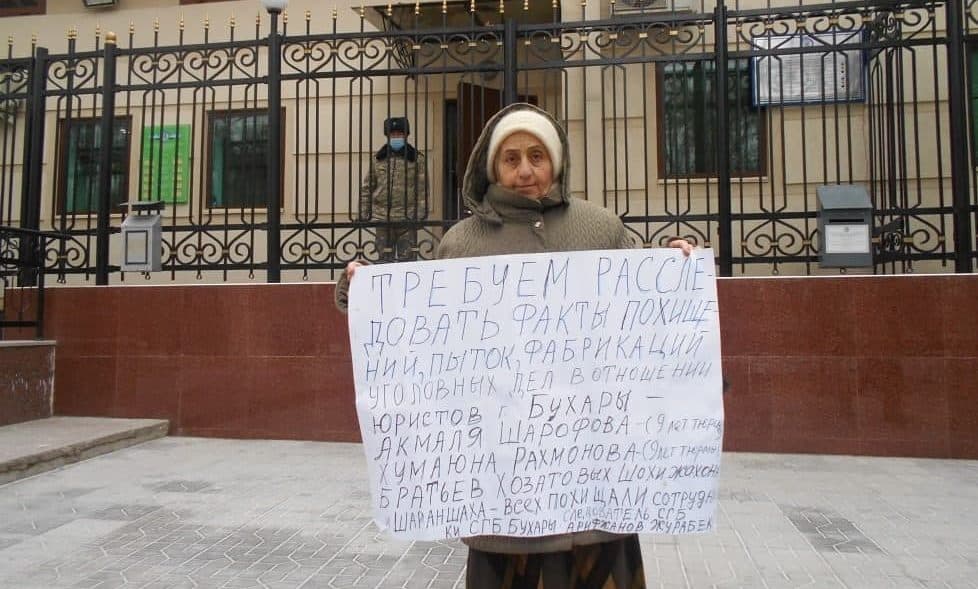 ТРЕБУЕМ РАССЛЕ-
ДОВАТЬ ФАКТЫ ПОХИЩЕ-
НИЙ, ПЫТОК, ФАБРИКАЦИЙ
УГОЛОВНЫХ ДЕЛ В ОТНОШЕНИИ
ЮРИСТОВ г. БУХАРЫ –
АКМАЛЯ ШАРОФОВА-(9 лет тюрьмы
ХУМАЮНА РАХМОНОВА-(9 лет тюрьмы)
БРАТЬЕВ ХОЗАТОВЫХ ШОХИЖОХОНА
ШАРАНШАХА-ВСЕХ ПОХИЩАЛИ СОТРУДНИ
КИ СГБ БУХАРЫ СЛЕДОВАТЕЛЬ СГБ
АРИФЖАНОВ ЖУРАБЕК